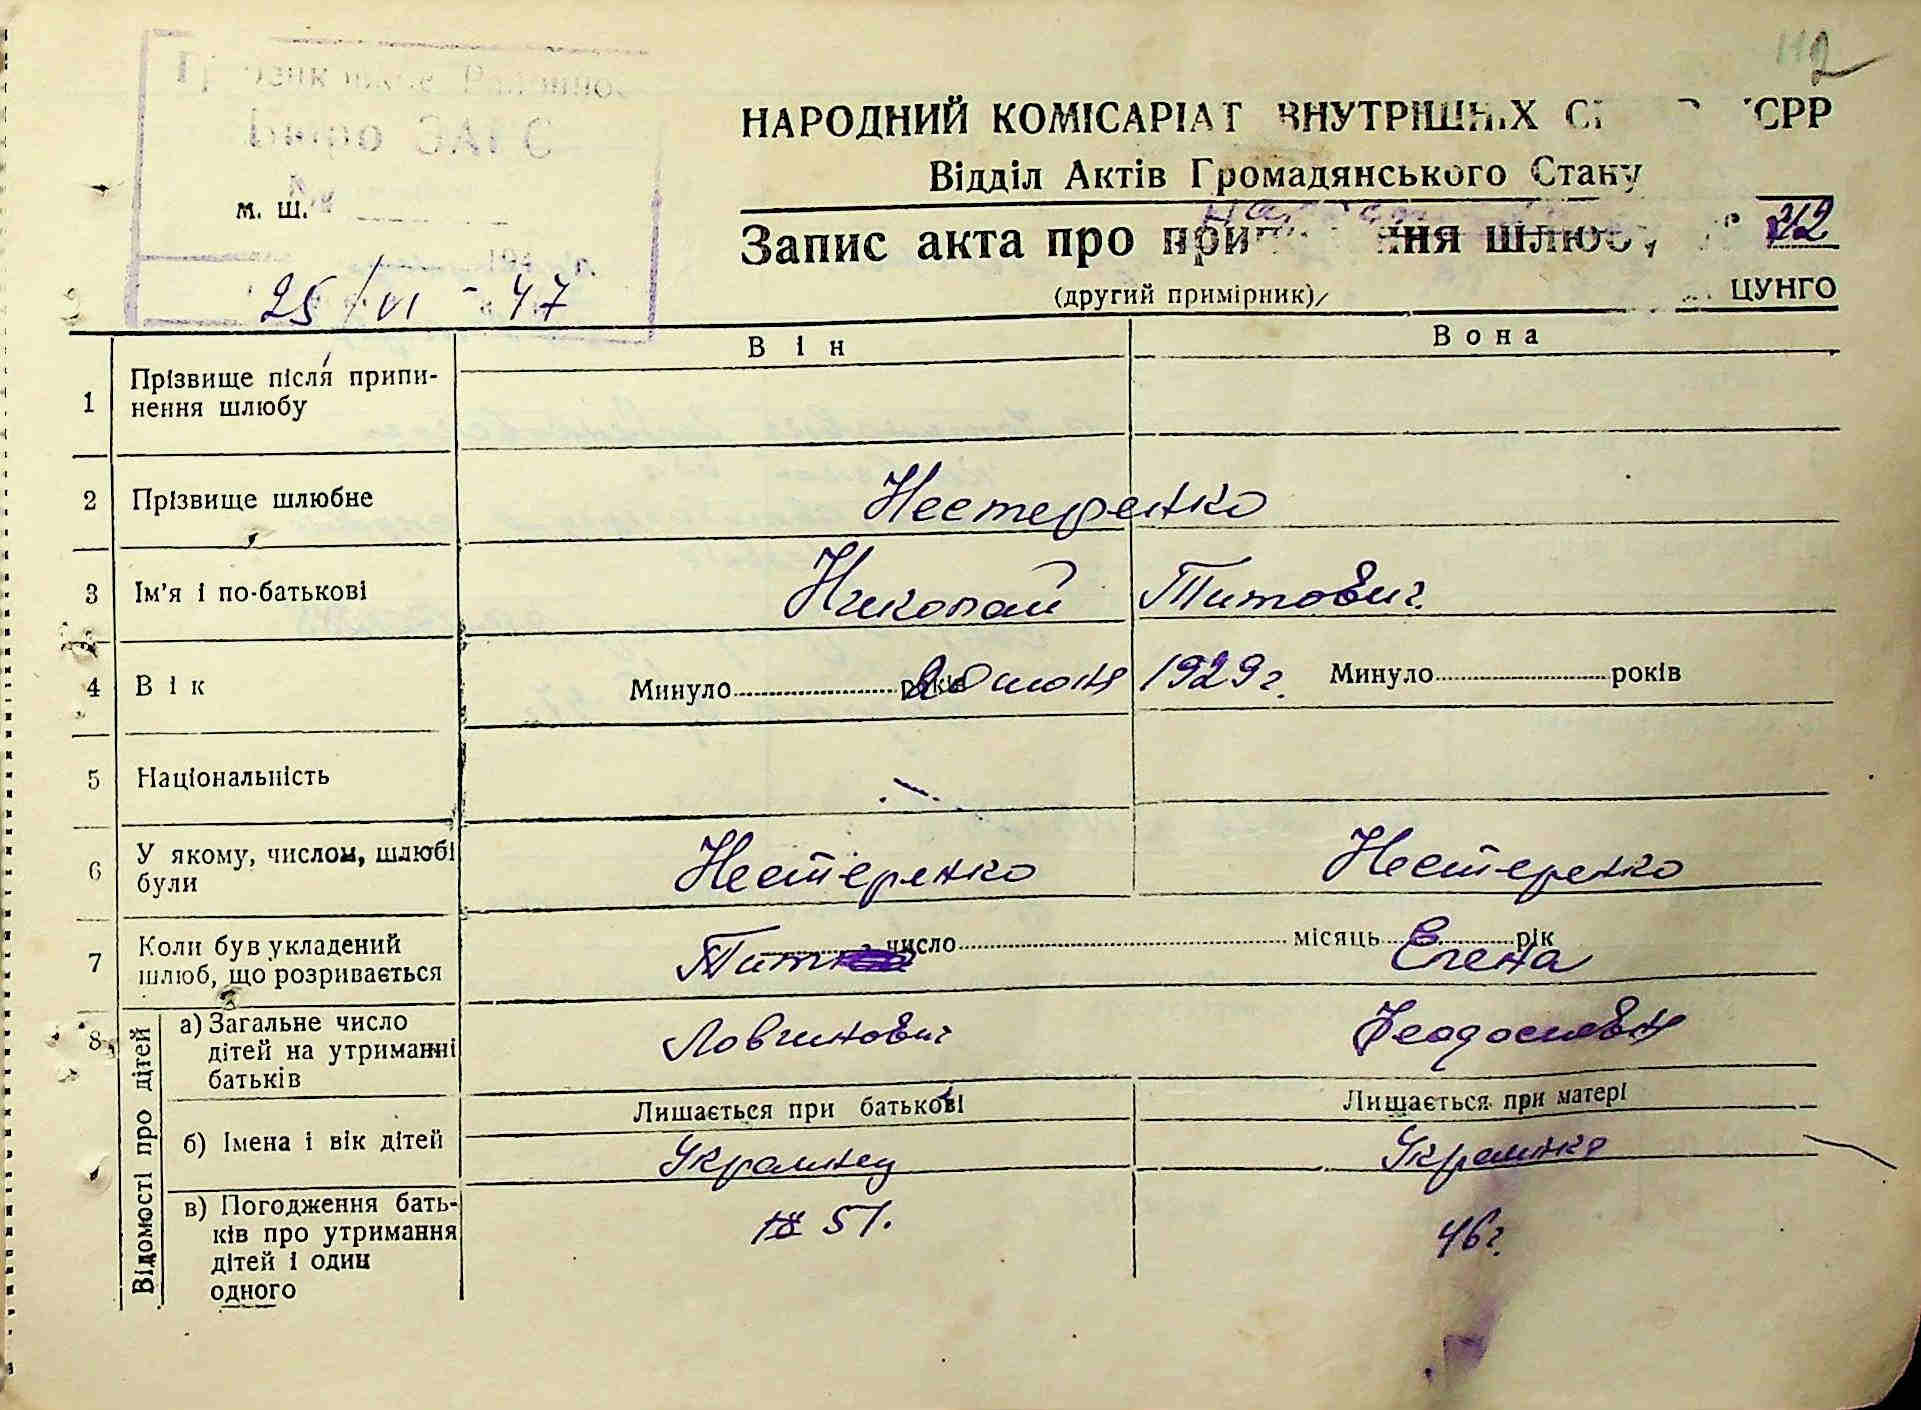 112
НАРОДНИЙ КОМІСАРІАТ ВНУТРІШНІХ УСРР
Відділ Актів Громадянського Стану
м. ш.
Запис акта про припинення шлюбу № 312
(другий примірник)
ЦУНГО
25/VI - 47
Він Вона
1 Прізвище після припинення шлюбу
2 Прізвище шлюбне Нестеренко
3 Ім'я і по-батькові Николай Титович
4 Вік Минуло років 20 июня 1929 г. Минуло років
5 Національність
6 У якому, числом, шлюбі були Нестеренко Нестеренко
7 Коли був укладений шлюб, що розривається число місяць рік
Тит Елена
8 Відомості про дітей
а) Загальне число дітей на утриманні батьків Логинович Феодосиевна
Лишається при батькові Лишається при матері
б) Імена і вік дітей Украинец Украинка
в) Погодження батьків про утримання дітей і один одного 51. 46 г.